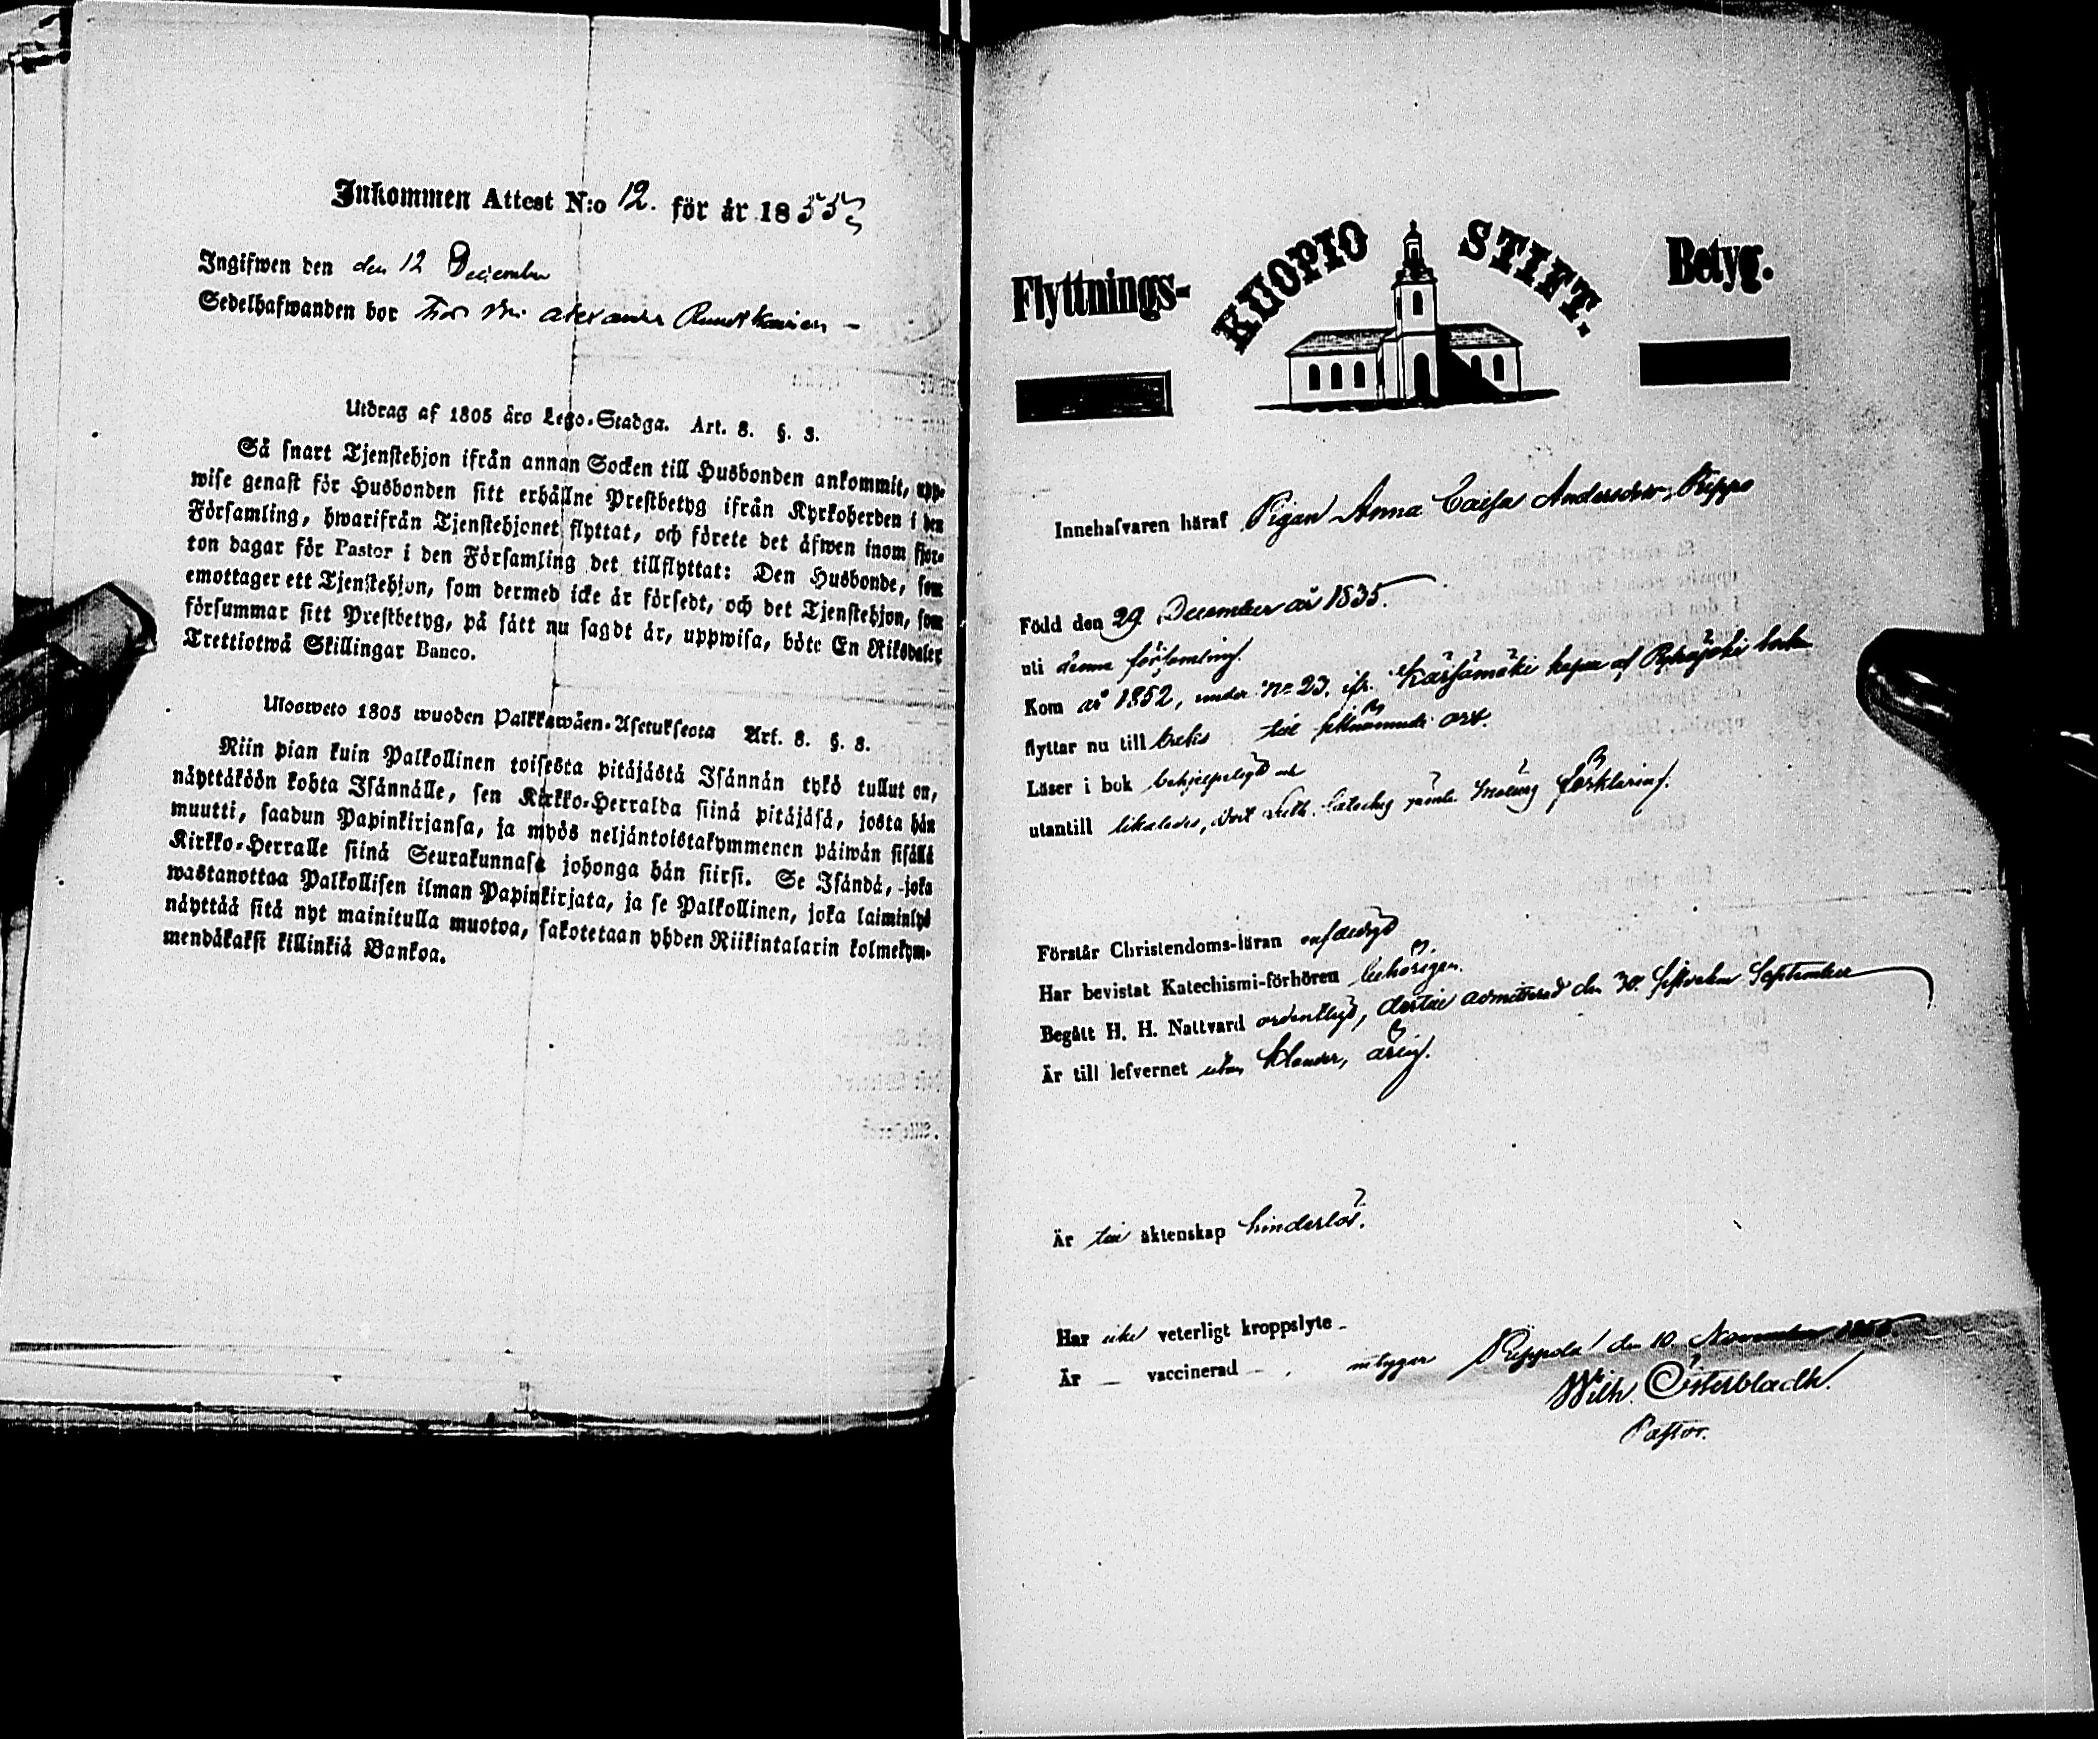 Inkommen Attest N:o 12. för år 1855
Ingifwen den den 12 December
Sedelhafwanden bor
Utdrag af 1805 års Lego-Stadga. Art. 8. §. 3.
Så snart Tjenstehjon ifrån annan Socken till Husbonden ankommit, upp-
wise genast för Husbonden sitt erhållne Prestbetyg ifrån Kyrkoherden i den
Församling, hwarifrån Tjenstehjonet flyttat, och förete det äfwen inom fjor-
ton dagar för Pastor i den Församling det tillflyttat: Den Husbonde, som
emottager ett Tjenstehjon, som dermed icke är försedt, och det Tjenstehjon, som
försummar sitt Prestbetyg, på sätt nu sagdt är, uppwisa, böte En Riksdaler
Trettiotwå Skillingar Banco.
Ulosweto 1805 wuoden Palkkawäen-Asetuksesta Art. 8. §. 3.
Niin pian kuin Palkollinen toisesta pitäjästä Isännän tykö tullut on,
näyttäköön kohta Isännälle, sen Kirkko-Herralda siinä pitäjäsä, josta hän
muutti, saadun Papinkirjansa, ja myös neljäntoistakymmenen päiwän sisällä
Kirkko-Herralle siinä Seurakunnasa johonga hän siirsi. Se Isändä, joka
wastanottaa Palkollisen ilman Papinkirjata, ja se Palkollinen, joka laiminlyö
näyttää sitä nyt mainitulla muotoa, sakotetaan yhden Riikintalarin kolmekym-
mendäkaksi killinkiä Bankoa.
Flyttnings- KUOPIO STIFT. Betyg.
Innehafvaren häraf Pigan Anna Caisa Andersdotter Rippo
Född den 29 December år 1835.
uti denna församling.
Kom år 1852, under No 23, ifr. Kärsämäki kapell af Pyhäjoki socken
flyttar nu till åter till sistnämnde ort.
Läser i bok behjelpeligt och
utantill likaledes, Doct Luth. Cateches jämte Förklaring.
Förstår Christendoms-läran enfaldigt
Har bevistat Katechismi-förhören behörigen.
Begått H. H. Nattvard ordentligt, dertill admitterad den 30 sistvekne September
Är till lefvernet utan klander, ärlig.
Är till äktenskap hinderlös.
Har icke veterligt kroppslyte -
Är — vaccinerad —, intygar Reisjärvi den 10 November 1855
Wilh. Österbladh.
Pastor.